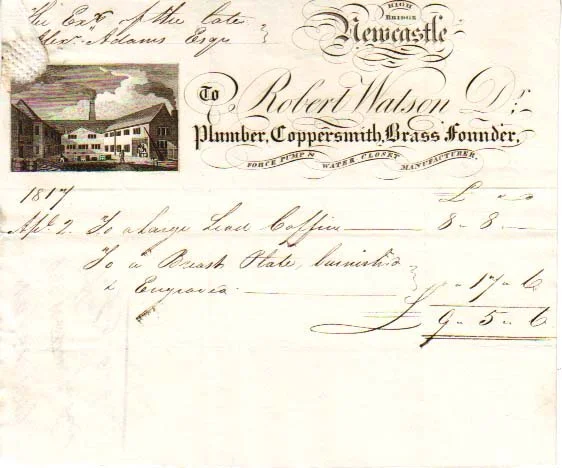 The Exrs of the late
Alexr Adams Esqr
HIGH
BRIDGE
Newcastle
To Robert Watson Dr.
Plumber, Coppersmith, Brass Founder,
FORCE PUMP & WATER CLOSET MANUFACTURER.
1817 £ " "
Apl 2. To a Large Lead Coffin 8 - 8 -
To a Breast Plate, burnished
& Engraved. " - 17 - 6
£ 9 - 5 - 6